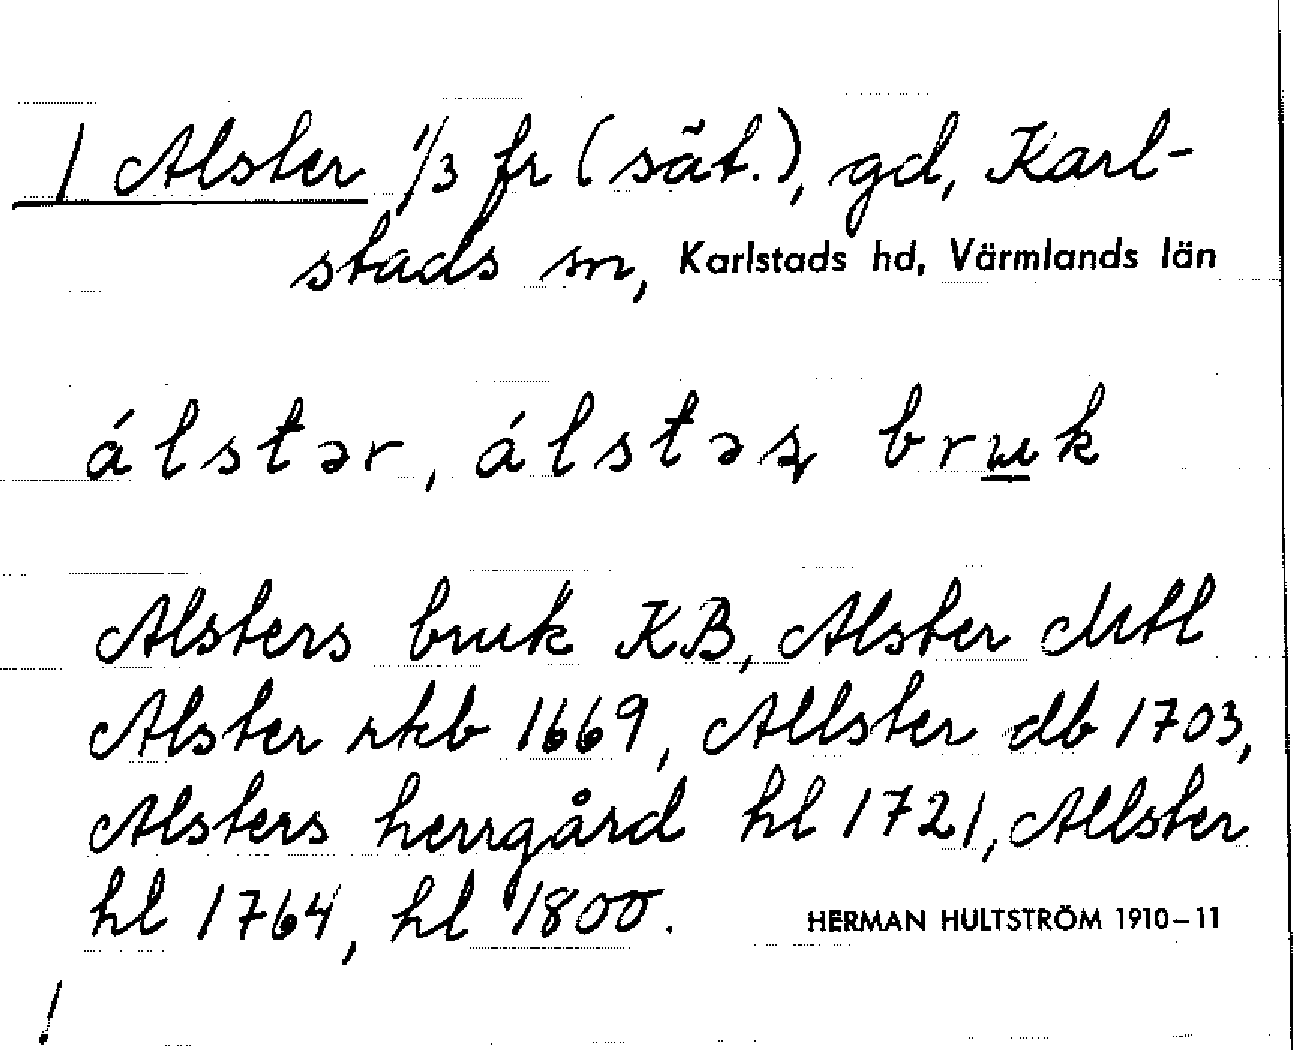 / Alster 1/3 fr (sät.), gd, Karl-
stads sn, Karlstads hd, Värmlands län
álstər, álstəʂ bru̲k
Alsters bruk KB, Alster Mtl
Alster rkb 1669, Allster db 1703,
Alsters herrgård hl 1721, Allster
hl 1764, hl 1800.
HERMAN HULTSTRÖM 1910–11
!